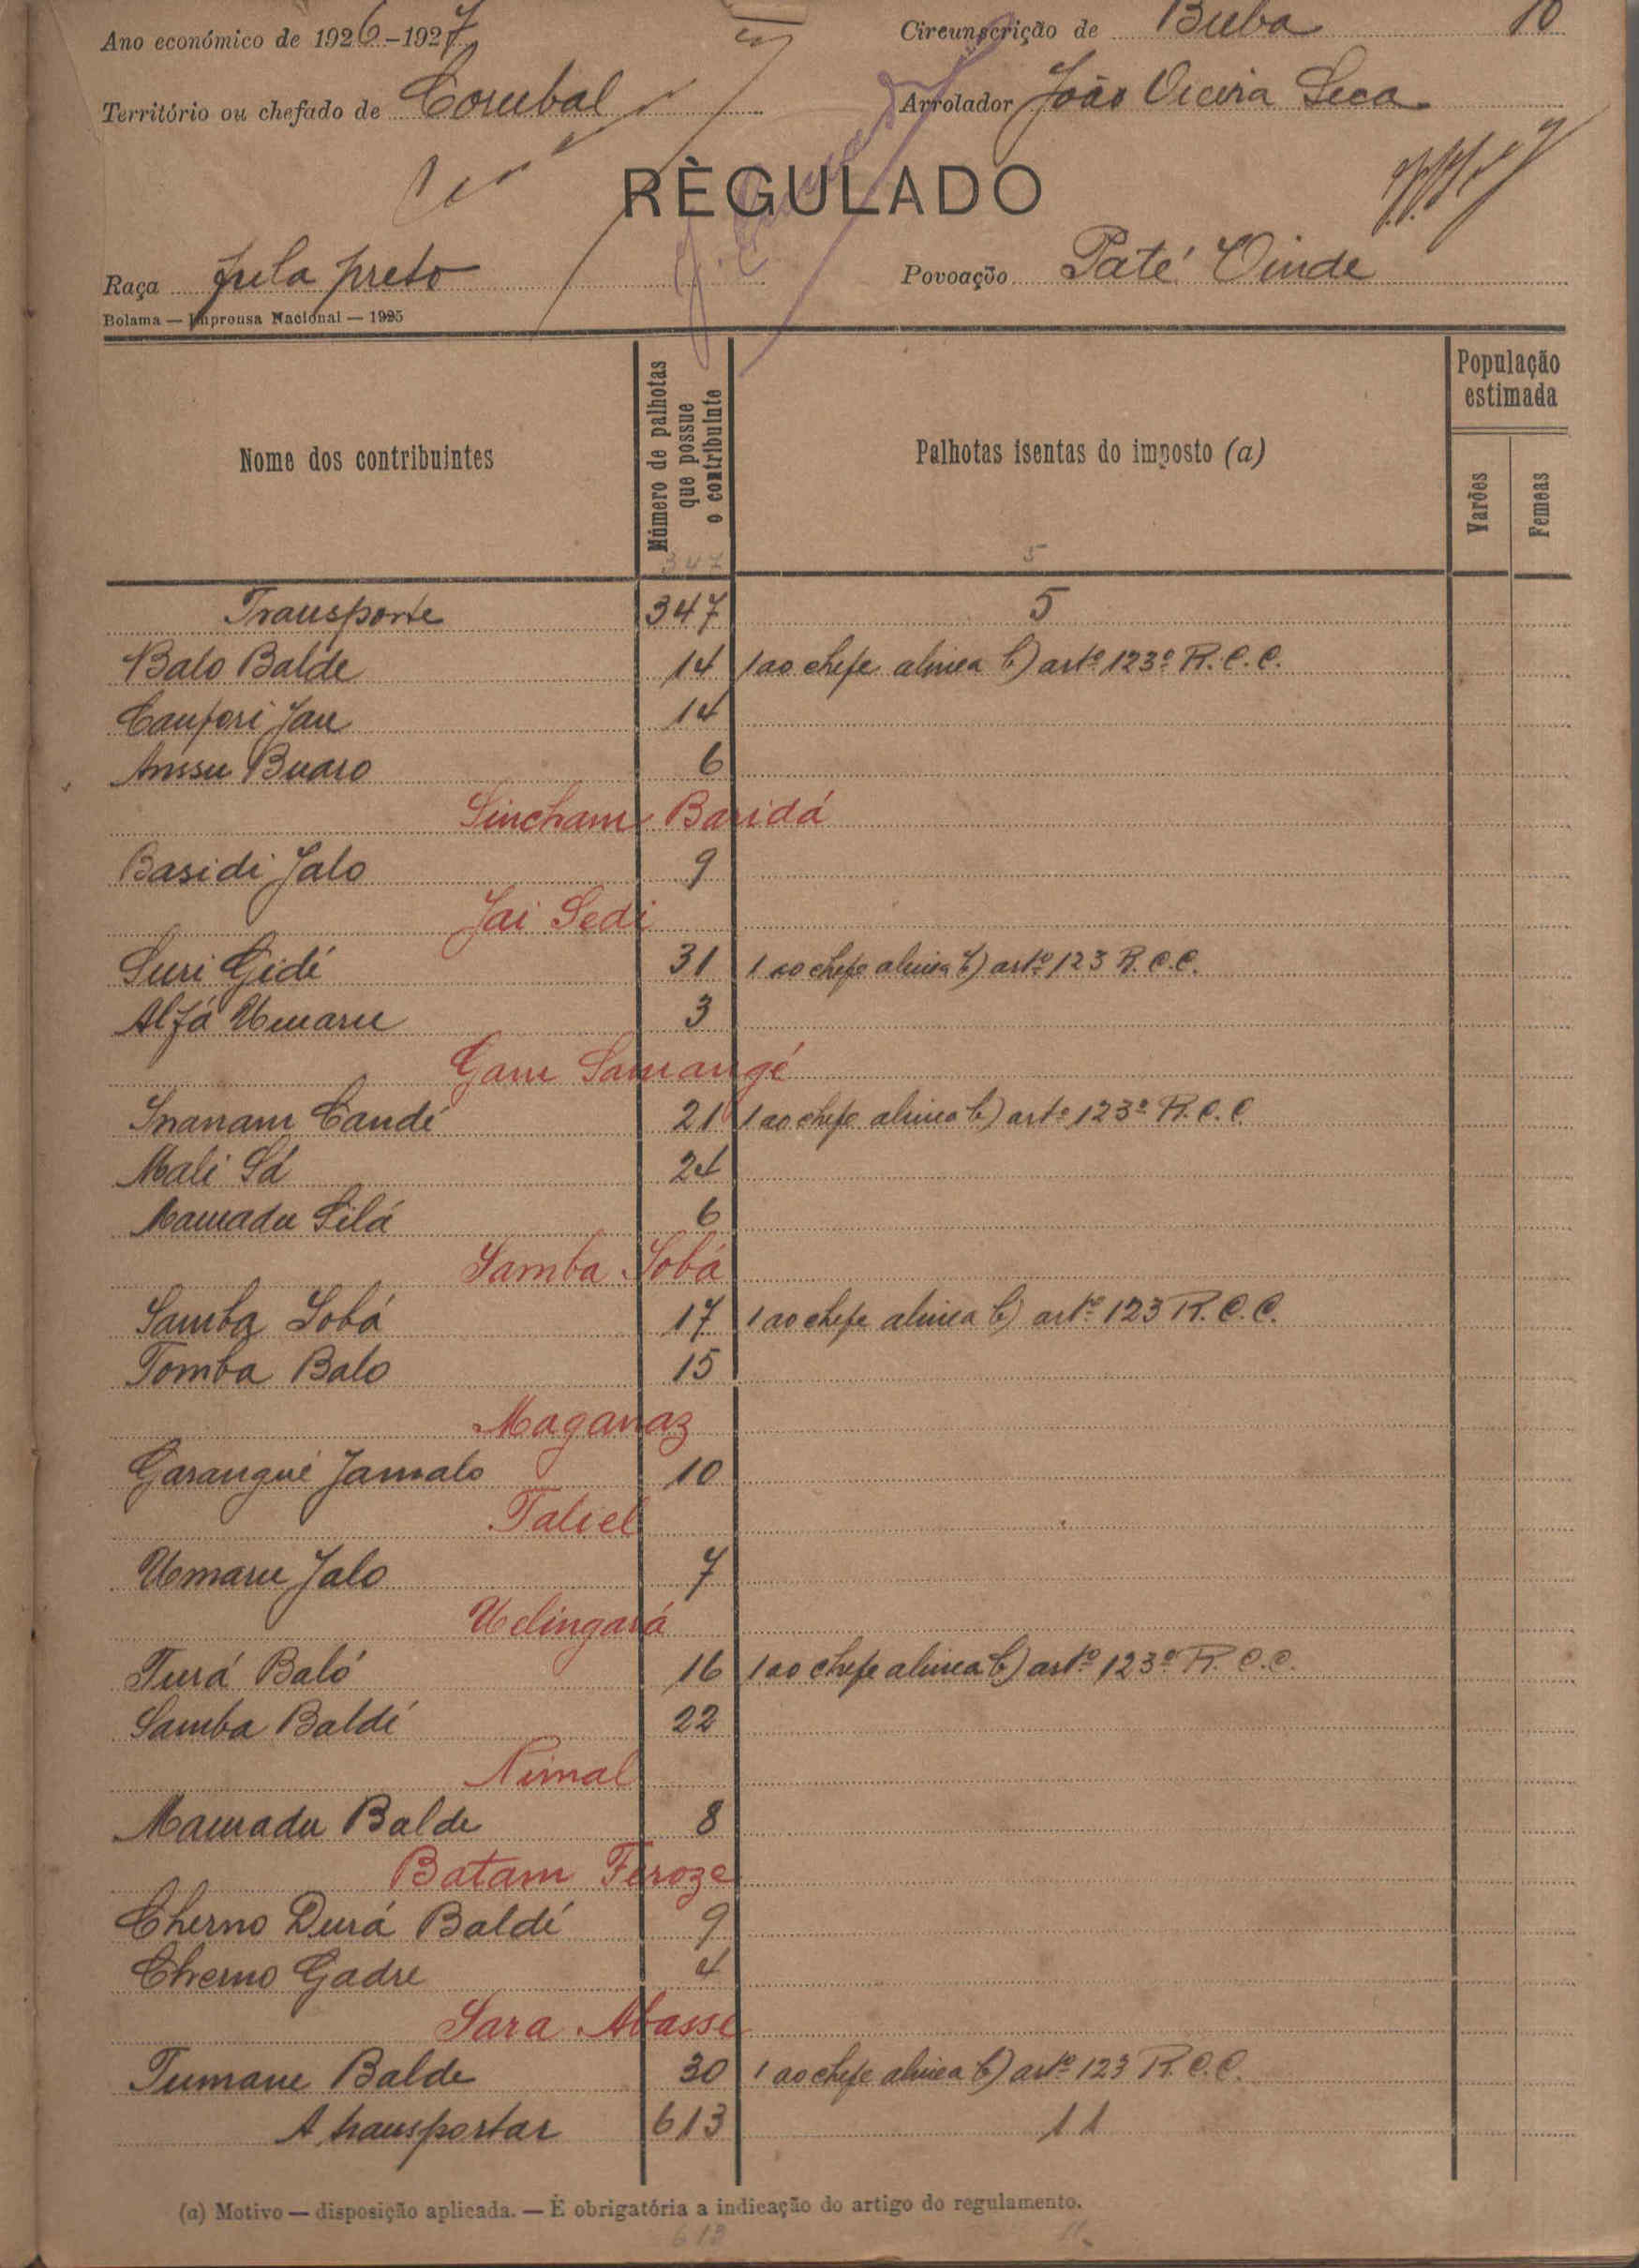 Ano económico de 1926-1927 Circunscrição de Buba 10
Território ou chefado de Corubal Arrolador João Vieira Seca
RÈGULADO
Raça fula preto Povoação Paté Vinde
Bolama — Imprensa Nacional — 1925
Nome dos contribuintes
Número de palhotas que possue o contribuinte
Palhotas isentas do imposto (a)
População estimada
Varões
Femeas
347 5
Transporte 347 5
Balo Balde 14 1 ao chefe alinea b) artº 123º R.C.C.
Canfori Jau 14
Anssu Buaro 6
Sincham Baridá
Basidi Jalo 9
Jai Sedi
Suri Gidí 31 1 ao chefe alinea b) artº 123 R.C.C.
Alfá Umaru 3
Gam Samangé
Inanam Candé 21 1 ao chefe alinea b) artº 123º R.C.C.
Mali Sá 24
Mamadu Silá 6
Samba Sobá
Samba Sobá 17 1 ao chefe alinea b) artº 123 R.C.C.
Tomba Balo 15
Maganaz
Garangué Jamalo 10
Taliel
Umaru Jalo 7
Uelingará
Turá Baló 16 1 ao chefe alinea b) artº 123º R.C.C.
Samba Baldé 22
Nimal
Mamadu Balde 8
Batam Feroze
Cherno Durá Baldé 9
Cherno Gadre 4
Sara Abasse
Tumane Balde 30 1 ao chefe alinea b) artº 123 R.C.C.
A transportar 613 11
(a) Motivo — disposição aplicada. — É obrigatória a indicação do artigo do regulamento.
613 11